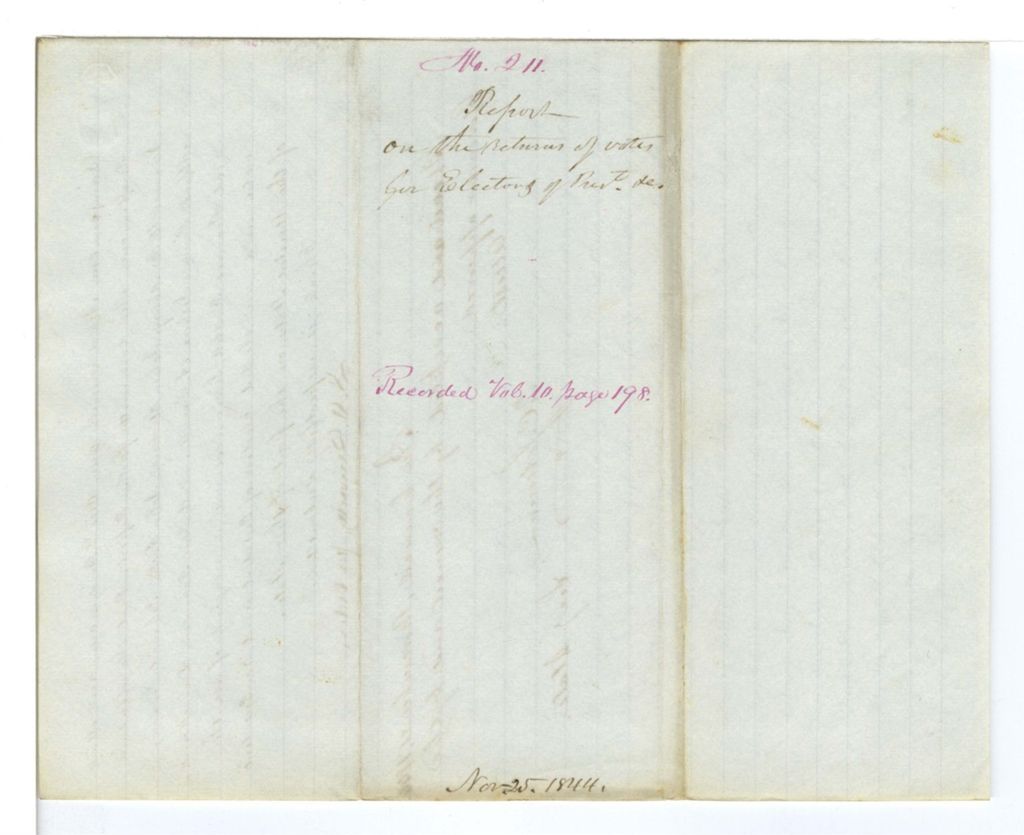 No. 211.
Report
on the returns of votes
for Electors of Prest. &c.
Recorded Vol. 10. page 198.
Nov. 25. 1844.